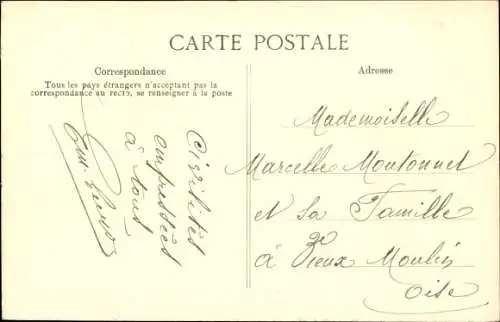 CARTE POSTALE
Correspondance
Tous les pays étrangers n'acceptant pas la
correspondance au recto, se renseigner à la poste
Civilités
empressées
à tout
Adresse
Mademoiselle
Marcelle Moutonnet
et sa Famille
à Vieux Moulin
Oise